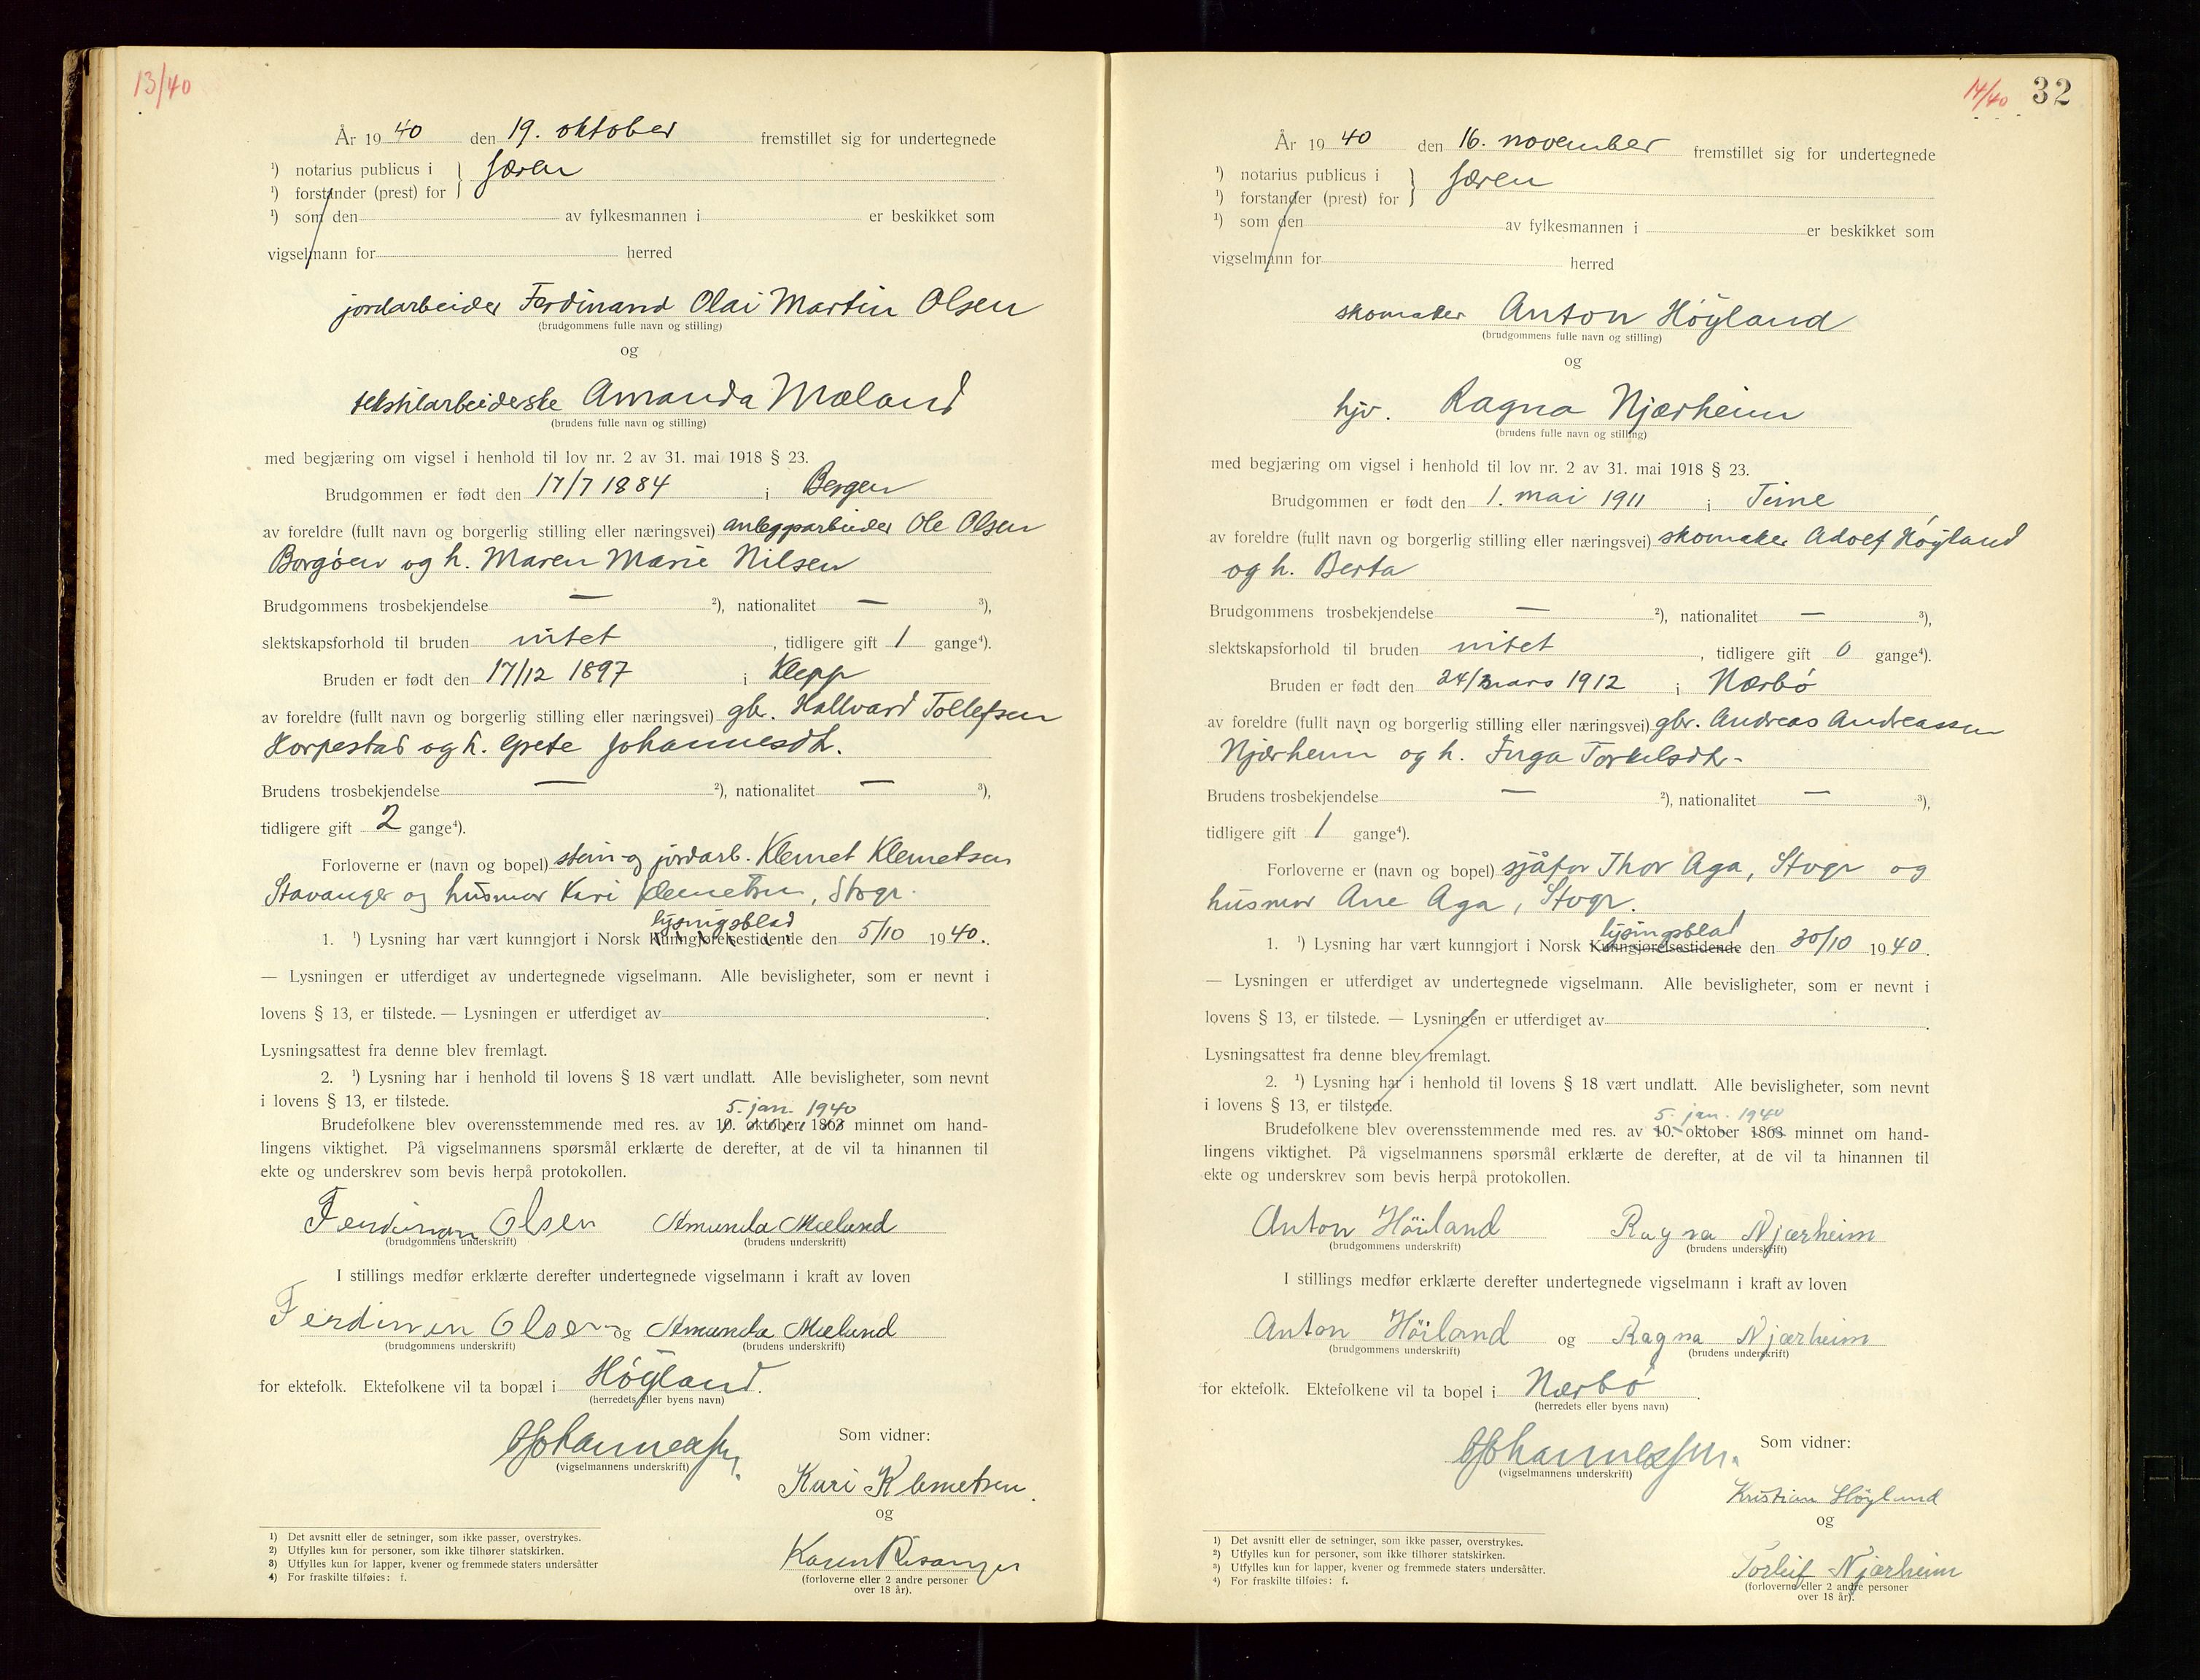 13/40
År 1940 den 19. oktober fremstillet sig for undertegnede
¹) notarius publicus i } Jæren
¹) forstander (prest) for
¹) som den av fylkesmannen i er beskikket som
vigselmann for herred
jordarbeider Ferdinand Olai Martin Olsen
(brudgommens fulle navn og stilling)
og
tekstilarbeiderske Amanda Mæland
(brudens fulle navn og stilling)
med begjæring om vigsel i henhold til lov nr. 2 av 31. mai 1918 § 23.
Brudgommen er født den 17/7 1884 i Bergen
av foreldre (fullt navn og borgerlig stilling eller næringsvei) anleggsarbeider Ole Olsen
Borgøen og h. Maren Marie Nilsen
Brudgommens trosbekjendelse — ²), nationalitet — ³),
slektskapsforhold til bruden intet, tidligere gift 1 gange⁴).
Bruden er født den 17/12 1897 i Klepp
av foreldre (fullt navn og borgerlig stilling eller næringsvei) gbr. Hallvard Tollefsen
Horpestad og h. Grete Johannesdt.
Brudens trosbekjendelse — ²), nationalitet — ³),
tidligere gift 2 gange⁴).
Forloverne er (navn og bopel) stein og jordarb. Klemet Klemetsen
Stavanger og husmor Kari Klemetsen, Stvgr.
lysingsblad
1. ¹) Lysning har vært kunngjort i Norsk Kunngjørelsestidende den 5/10 1940.
— Lysningen er utferdiget av undertegnede vigselmann. Alle bevisligheter, som er nevnt i
lovens § 13, er tilstede. — Lysningen er utferdiget av .
Lysningsattest fra denne blev fremlagt.
2. ¹) Lysning har i henhold til lovens § 18 vært undlatt. Alle bevisligheter, som nevnt
i lovens § 13, er tilstede.
5. jan. 1940
Brudefolkene blev overensstemmende med res. av 10. oktober 1863 minnet om hand-
lingens viktighet. På vigselmannens spørsmål erklærte de derefter, at de vil ta hinannen til
ekte og underskrev som bevis herpå protokollen.
Ferdinan Olsen Amanda Mæland
(brudgommens underskrift) (brudens underskrift)
I stillings medfør erklærte derefter undertegnede vigselmann i kraft av loven
Ferdinan Olsen og Amanda Mæland
(brudgommens underskrift) (brudens underskrift)
for ektefolk. Ektefolkene vil ta bopæl i Høyland.
(herredets eller byens navn)
Johannessen.
(vigselmannens underskrift)
Som vidner:
Kari Klemetsen
og
Karen Risanger
(forloverne eller 2 andre personer
over 18 år).
1) Det avsnitt eller de setninger, som ikke passer, overstrykes.
2) Utfylles kun for personer, som ikke tilhører statskirken.
3) Utfylles kun for lapper, kvener og fremmede staters undersåtter
4) For fraskilte tilføies: f.
14/40 32
År 1940 den 16. november fremstillet sig for undertegnede
¹) notarius publicus i } Jæren
¹) forstander (prest) for
¹) som den av fylkesmannen i er beskikket som
vigselmann for herred
skomaker Anton Høyland
(brudgommens fulle navn og stilling)
og
hjv. Ragna Njærheim
(brudens fulle navn og stilling)
med begjæring om vigsel i henhold til lov nr. 2 av 31. mai 1918 § 23.
Brudgommen er født den 1. mai 1911 i Time
av foreldre (fullt navn og borgerlig stilling eller næringsvei) skomaker Adolf Høyland
og h. Berta
Brudgommens trosbekjendelse — ²), nationalitet — ³),
slektskapsforhold til bruden intet, tidligere gift 0 gange⁴).
Bruden er født den 24/mars 1912 i Nærbø
av foreldre (fullt navn og borgerlig stilling eller næringsvei) gbr. Andreas Andreassen
Njærheim og h. Inga Torkelsdt.
Brudens trosbekjendelse — ²), nationalitet — ³),
tidligere gift 1 gange⁴).
Forloverne er (navn og bopel) sjåfør Thor Aga, Stvgr og
husmor Ane Aga, Stvgr.
lysingsblad
1. ¹) Lysning har vært kunngjort i Norsk Kunngjørelsestidende den 30/10 1940.
— Lysningen er utferdiget av undertegnede vigselmann. Alle bevisligheter, som er nevnt i
lovens § 13, er tilstede. — Lysningen er utferdiget av .
Lysningsattest fra denne blev fremlagt.
2. ¹) Lysning har i henhold til lovens § 18 vært undlatt. Alle bevisligheter, som nevnt
i lovens § 13, er tilstede.
5. jan. 1940
Brudefolkene blev overensstemmende med res. av 10. oktober 1863 minnet om hand-
lingens viktighet. På vigselmannens spørsmål erklærte de derefter, at de vil ta hinannen til
ekte og underskrev som bevis herpå protokollen.
Anton Höiland Ragna Njærheim
(brudgommens underskrift) (brudens underskrift)
I stillings medfør erklærte derefter undertegnede vigselmann i kraft av loven
Anton Höiland og Ragna Njærheim
(brudgommens underskrift) (brudens underskrift)
for ektefolk. Ektefolkene vil ta bopel i Nærbø.
(herredets eller byens navn)
Johannessen.
(vigselmannens underskrift)
Som vidner:
Kristian Høyland
og
Torleif Njærheim
(forloverne eller 2 andre personer
over 18 år).
1) Det avsnitt eller de setninger, som ikke passer, overstrykes.
2) Utfylles kun for personer, som ikke tilhører statskirken.
3) Utfylles kun for lapper, kvener og fremmede staters undersåtter.
4) For fraskilte tilføies: f.